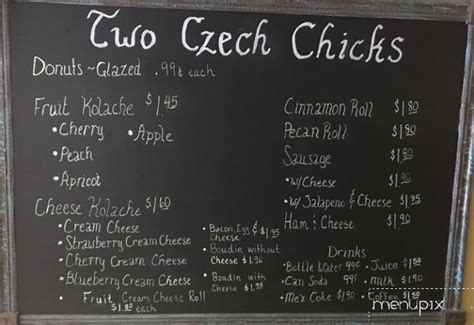 Two Czech Chicks
Donuts ~ Glazed .99¢ each
Fruit Kolache $1.45
• Cherry • Apple
• Peach
• Apricot
Cheese Kolache $1.60
• Cream Cheese
• Strawberry Cream Cheese
• Cherry Cream Cheese
• Blueberry Cream Cheese
Fruit Cream Cheese Roll
$1.80
• Bacon, Egg & $1.95
Cheese
• Boudin without
Cheese $1.90
• Boudin with
Cheese $1.95
Cinnamon Roll $1.80
Pecan Roll $1.80
Sausage $1.80
• w/Cheese $1.90
• w/ Jalapeno & Cheese $1.95
Ham & Cheese $1.90
Drinks
• Bottle Water 99¢ • Juice $1.50
• Can Soda 99¢ • Milk
• Mex Coke • Coffee
menupix